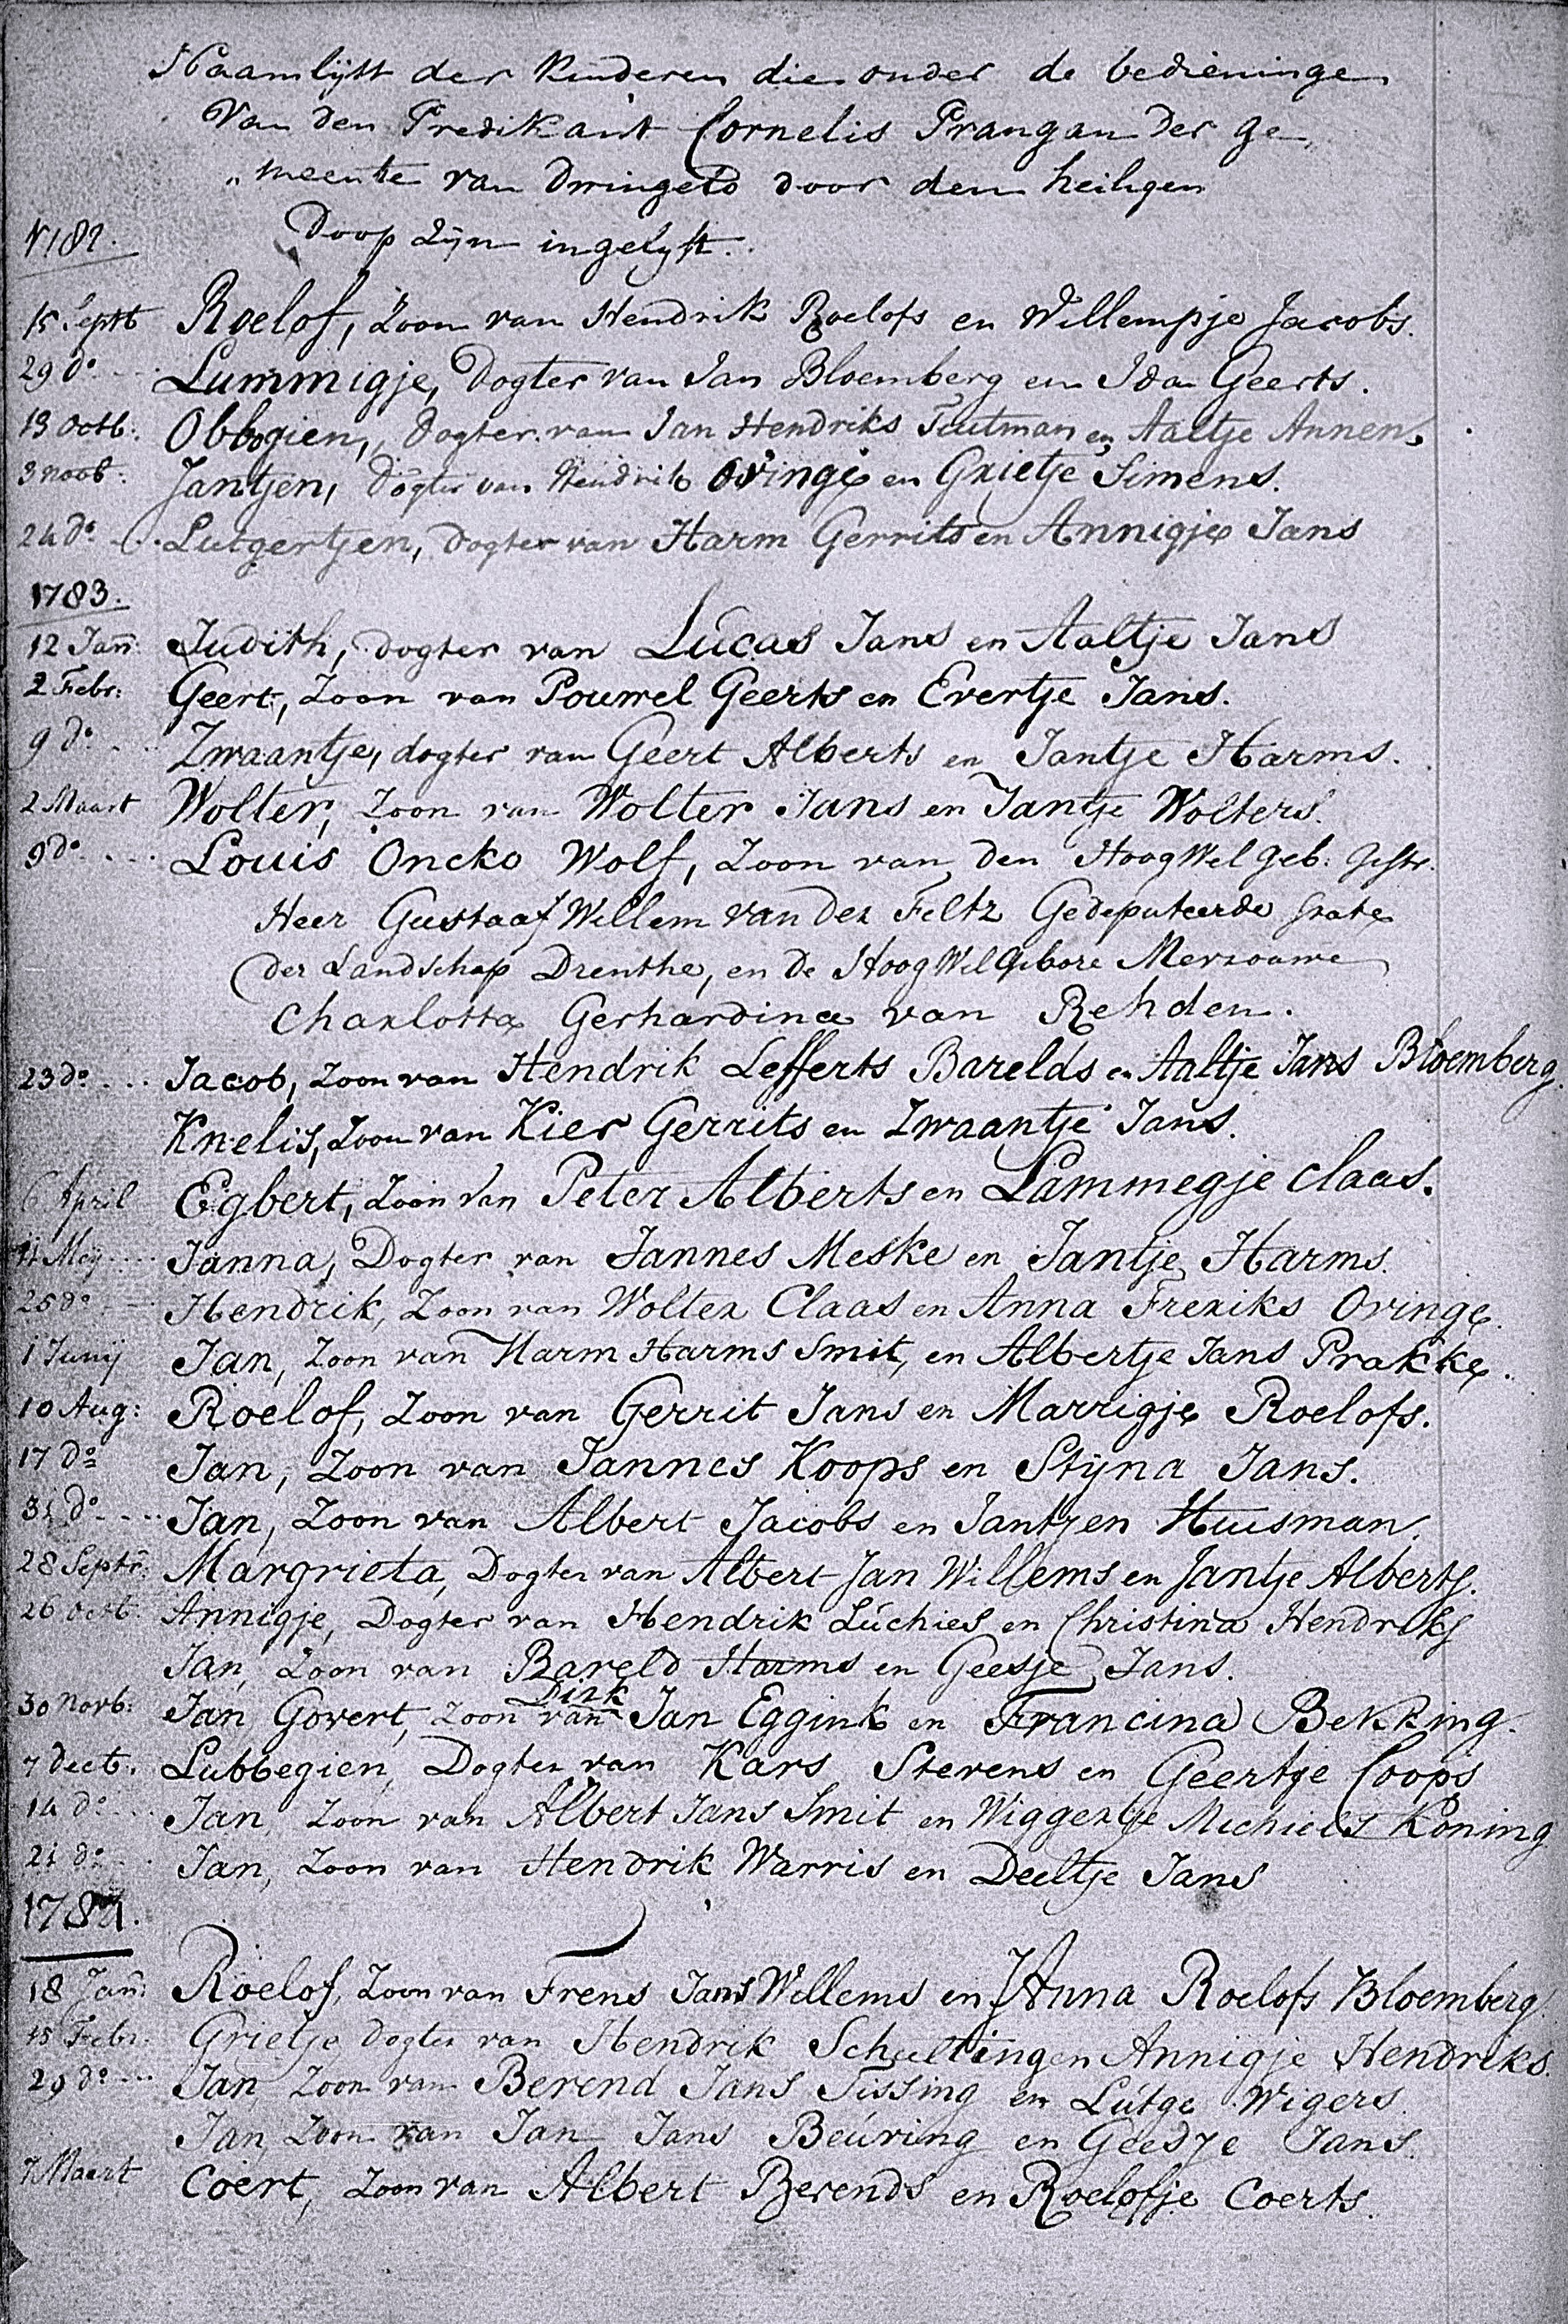 Naamlijst der kinderen die onder de bedieninge
Van den Predikant Cornelis Prangan der ge
„meente van Dwingelo door den heiligen
Doop zijn ingelijft.
1782.
15 Septb Roelof, Zoon van Hendrik Roelofs en Willempje Jacobs.
29 do Lummigje, Dogter van Jan Bloemberg en Ida Geerts.
13 Octb: Obbogien, Dogter van Jan Hendriks en Aaltje Annen.
3 novb: Jantjen, Dogter van Hendrik Ovinge en Grietje Simens.
24 do Lutgertjen, Dogter van Harm Gerrits en Annigje Jans
1783.
12 Jan: Judith, Dogter van Lucas Jans en Aaltje Jans
2 Febr: Geert, Zoon van Pouwel Geerts en Evertje Jans.
9 do Zwaantje, dogter van Geert Alberts en Jantje Harms.
2 Maart Wolter, Zoon van Wolter Jans en Jantje Wolters.
9 do Louis Oncko Wolf, Zoon van den HoogWel geb: Gestr.
Heer Gustaaf Willem van der Feltz Gedeputeerde State
der Landschap Drenthe, en de HoogWelgebore Mevrouwe
Charlotta Gerhardina van Rehden.
23 do Jacob, Zoon van Hendrik Lefferts Barelds en Aaltje Jans Bloemberg.
Knelis, Zoon van Kier Gerrits en Zwaantje Jans.
6 April Egbert, Zoon van Peter Alberts en Lammegje Claas.
11 Mey Janna, Dogter van Jannes Meske en Jantje Harms.
25 do Hendrik, Zoon van Wolter Claas en Anna Freriks Ovinge.
1 Junij Jan, Zoon van Harm Harms Smit, en Albertje Jans Prakke.
10 Aug: Roelof, Zoon van Gerrit Jans en Marrigje Roelofs.
17 do Jan, Zoon van Jannes Koops en Stijna Jans.
31 do Jan, Zoon van Albert Jacobs en Jantjen Huisman.
28 Septr: Margrieta, Dogter van Albert Jan Willems en Jantje Alberts.
26 Octb: Annigje, Dogter van Hendrik Lúchies en Christina Hendriks
Jan, Zoon van Bareld Harms en Geesje Jans.
Dirk
30 Novb: Jan Govert, Zoon van Jan Eggink en Francina Bekking.
7 Decb: Lubbegien, Dogter van Kars Stevens en Geertje Coops
14 do Jan, Zoon van Albert Jans Smit en Wiggertje Michiels Koning
21 do Jan, Zoon van Hendrik Warris en Deeltje Jans
1784.
18 Jan: Roelof, Zoon van Frens Jans Willems en Anna Roelofs Bloemberg.
15 Febr: Grietje dogter van Hendrik Schulting en Annigje Hendriks.
29 do Jan, Zoon van Berend Jans Tissing en Lútge Wigers.
Jan, Zoon van Jan Jans Beúring en Geesje Jans.
7 Maart Coert, Zoon van Albert Berends en Roelofje Coerts.